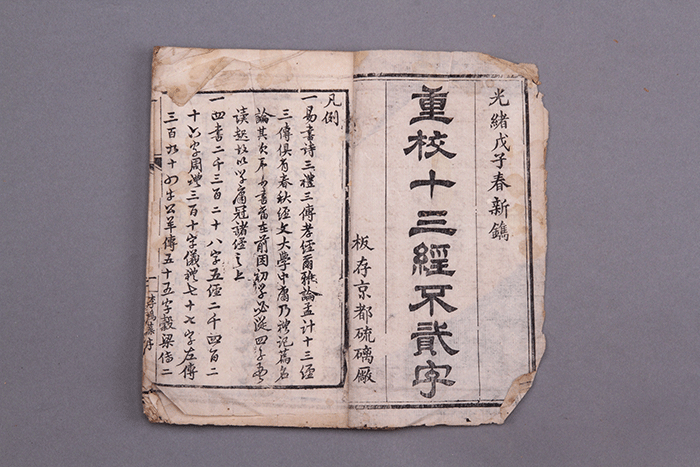 光緒戊子春新鐫
重校十三經不貳字
板存京都琉璃厰
凡例
一易書詩三禮三傳孝經爾雅論孟計十三經
三傳俱有春秋經文大學中庸乃禮記篇名
論其次不書當在前因初學必從四子書
讀起故以學庸冠諸經之上
一四書二千三百二十八字五經二千四百二
十六字周禮三百十字儀禮七十七字左傳
三百九十四字公羊傳五十五字穀梁傳二
李鴻藻序